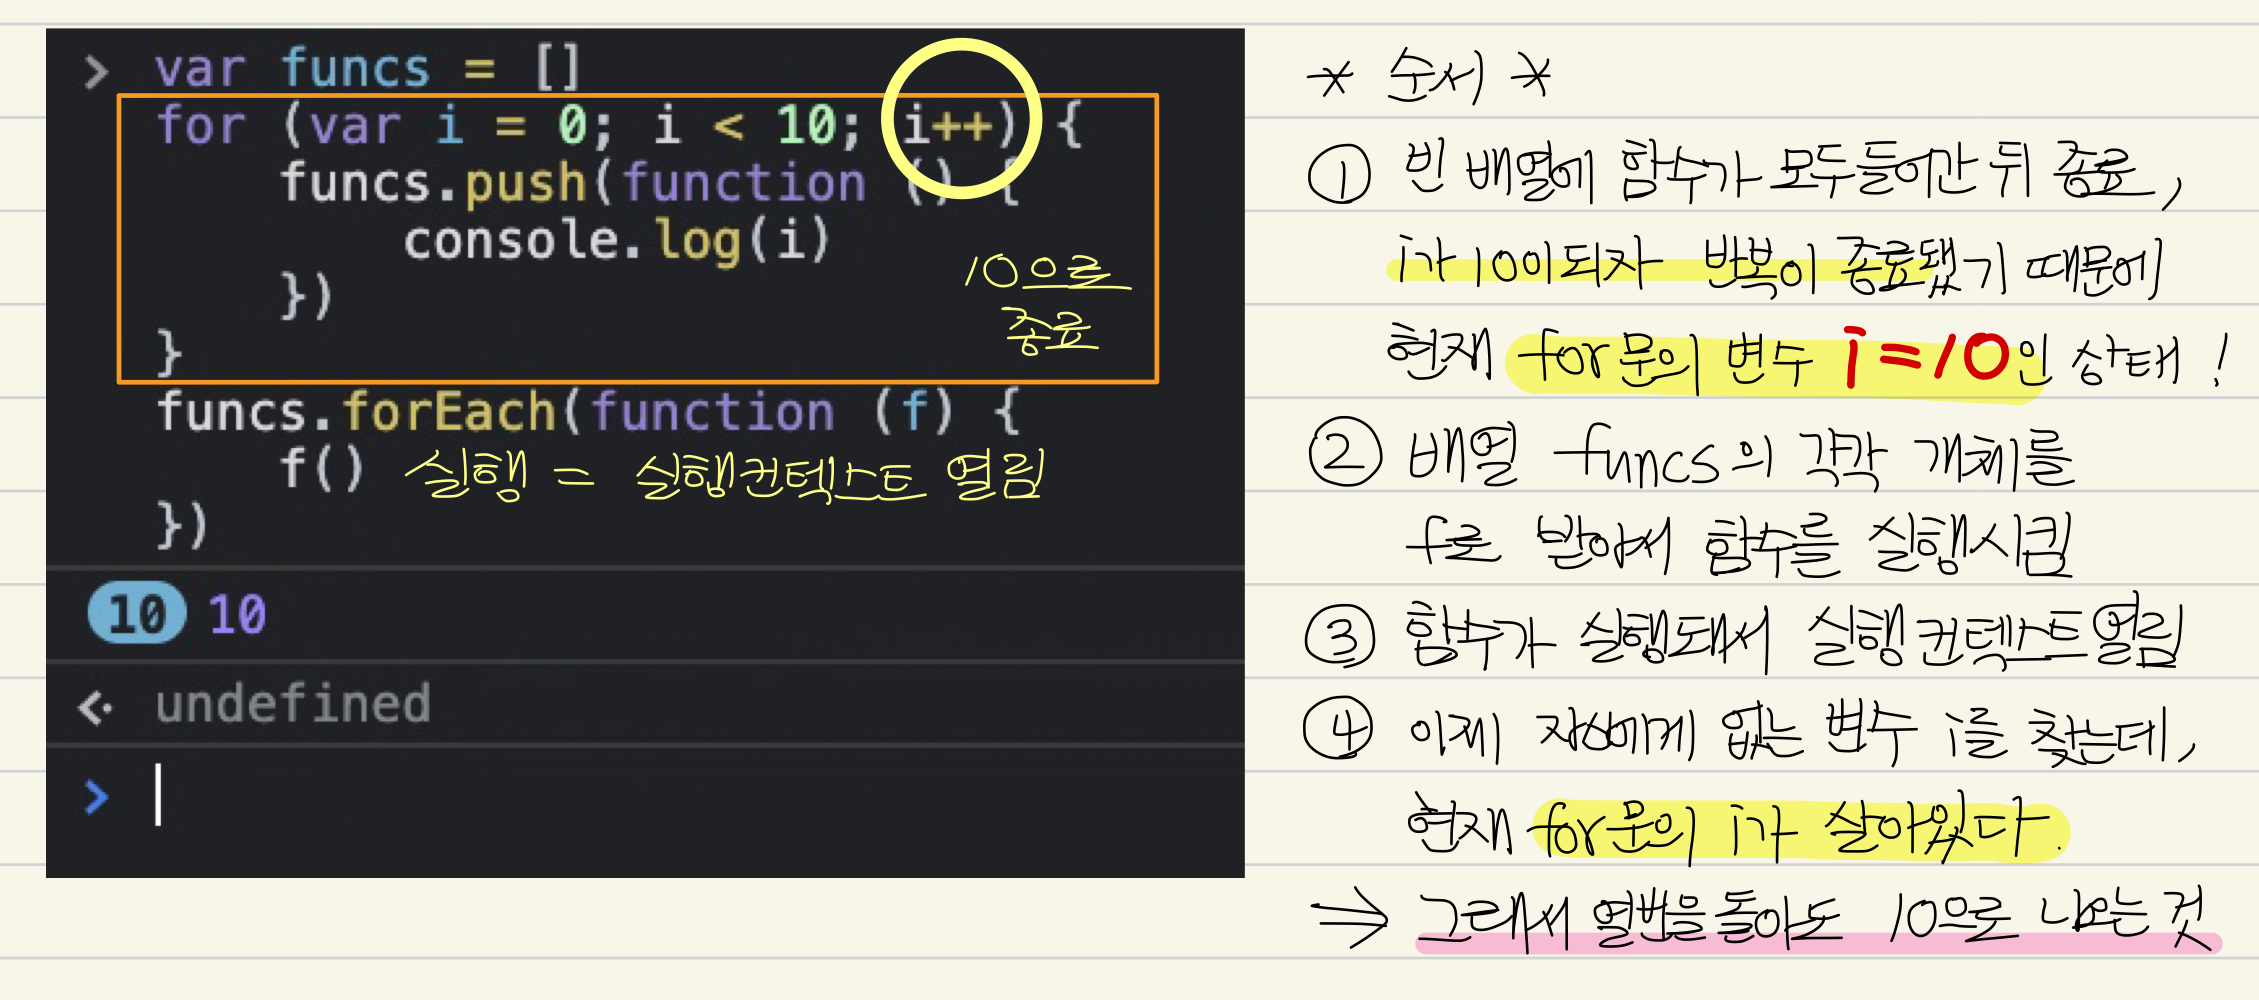 > var funcs = []
for (var i = 0; i < 10; i++) {
funcs.push(function () {
console.log(i)
})
}
10으로
종료
funcs.forEach(function (f) {
f() 실행 = 실행컨텍스트 열림
})
10 10
undefined
>
* 순서 *
① 빈 배열에 함수가 모두 들어간 뒤 종료,
i가 10이되자 반복이 종료됐기 때문에
현재 for문의 변수 i=10인 상태!
② 배열 funcs의 각각 개체를
f로 받아서 함수를 실행시킴
③ 함수가 실행돼서 실행컨텍스트열림
④ 이제 자신에게 없는 변수 i를 찾는데,
현재 for문의 i가 살아있다.
⇒ 그래서 열번을 돌아도 10으로 나오는 것